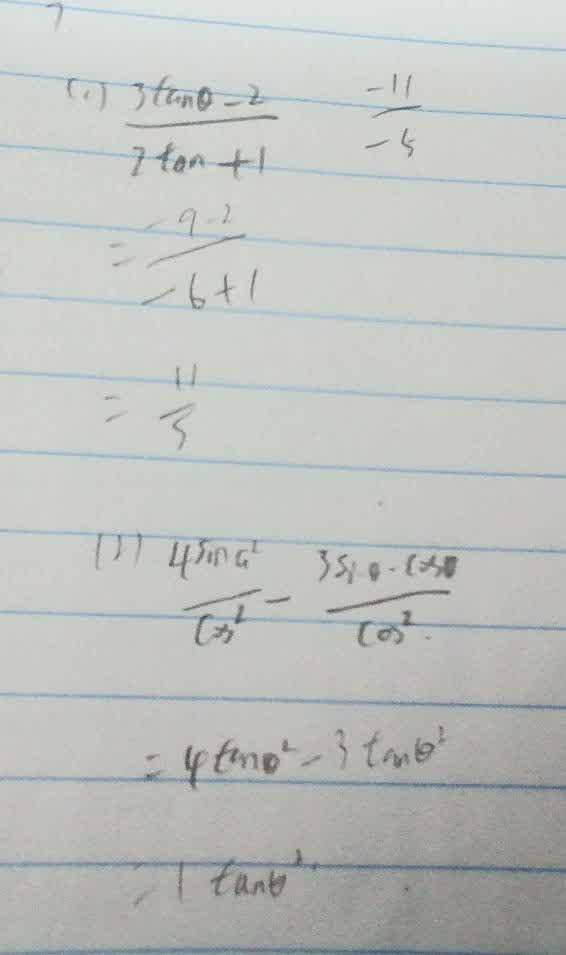 (1) 3tanθ-2 / 2tan+1    -11 / -5
= -9-2 / -6+1
= 11 / 5
(2) 4sinα² / cos² - 3sinθ·cosθ / cos²
= 4tanθ² - 3tanθ²
= 1 tanθ²